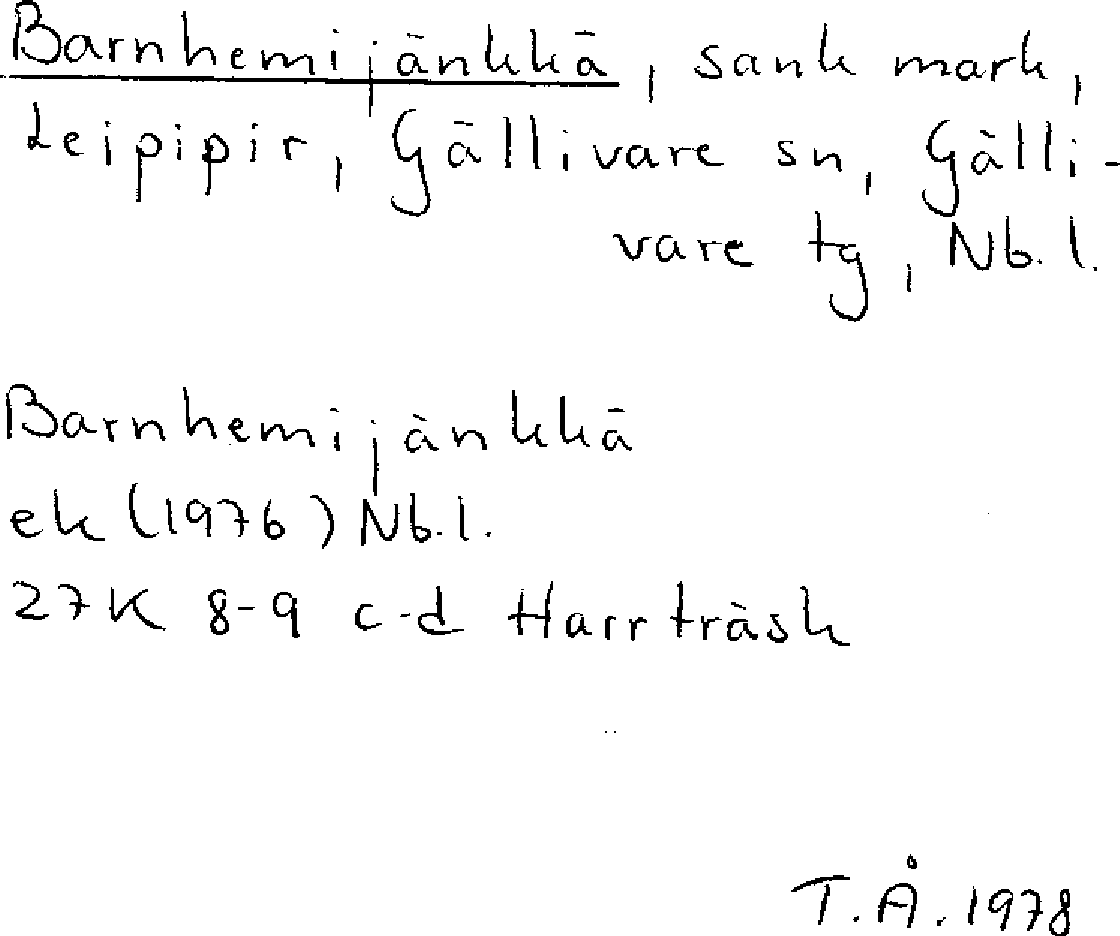 Barnhemijänkkä, sank mark,
Leipipir, Gällivare sn, Gälli-
vare tg, Nb.l.
Barnhemijänkkä
ek (1976) Nb.l.
27K 8-9 c-d Harrträsk
T.Å. 1978